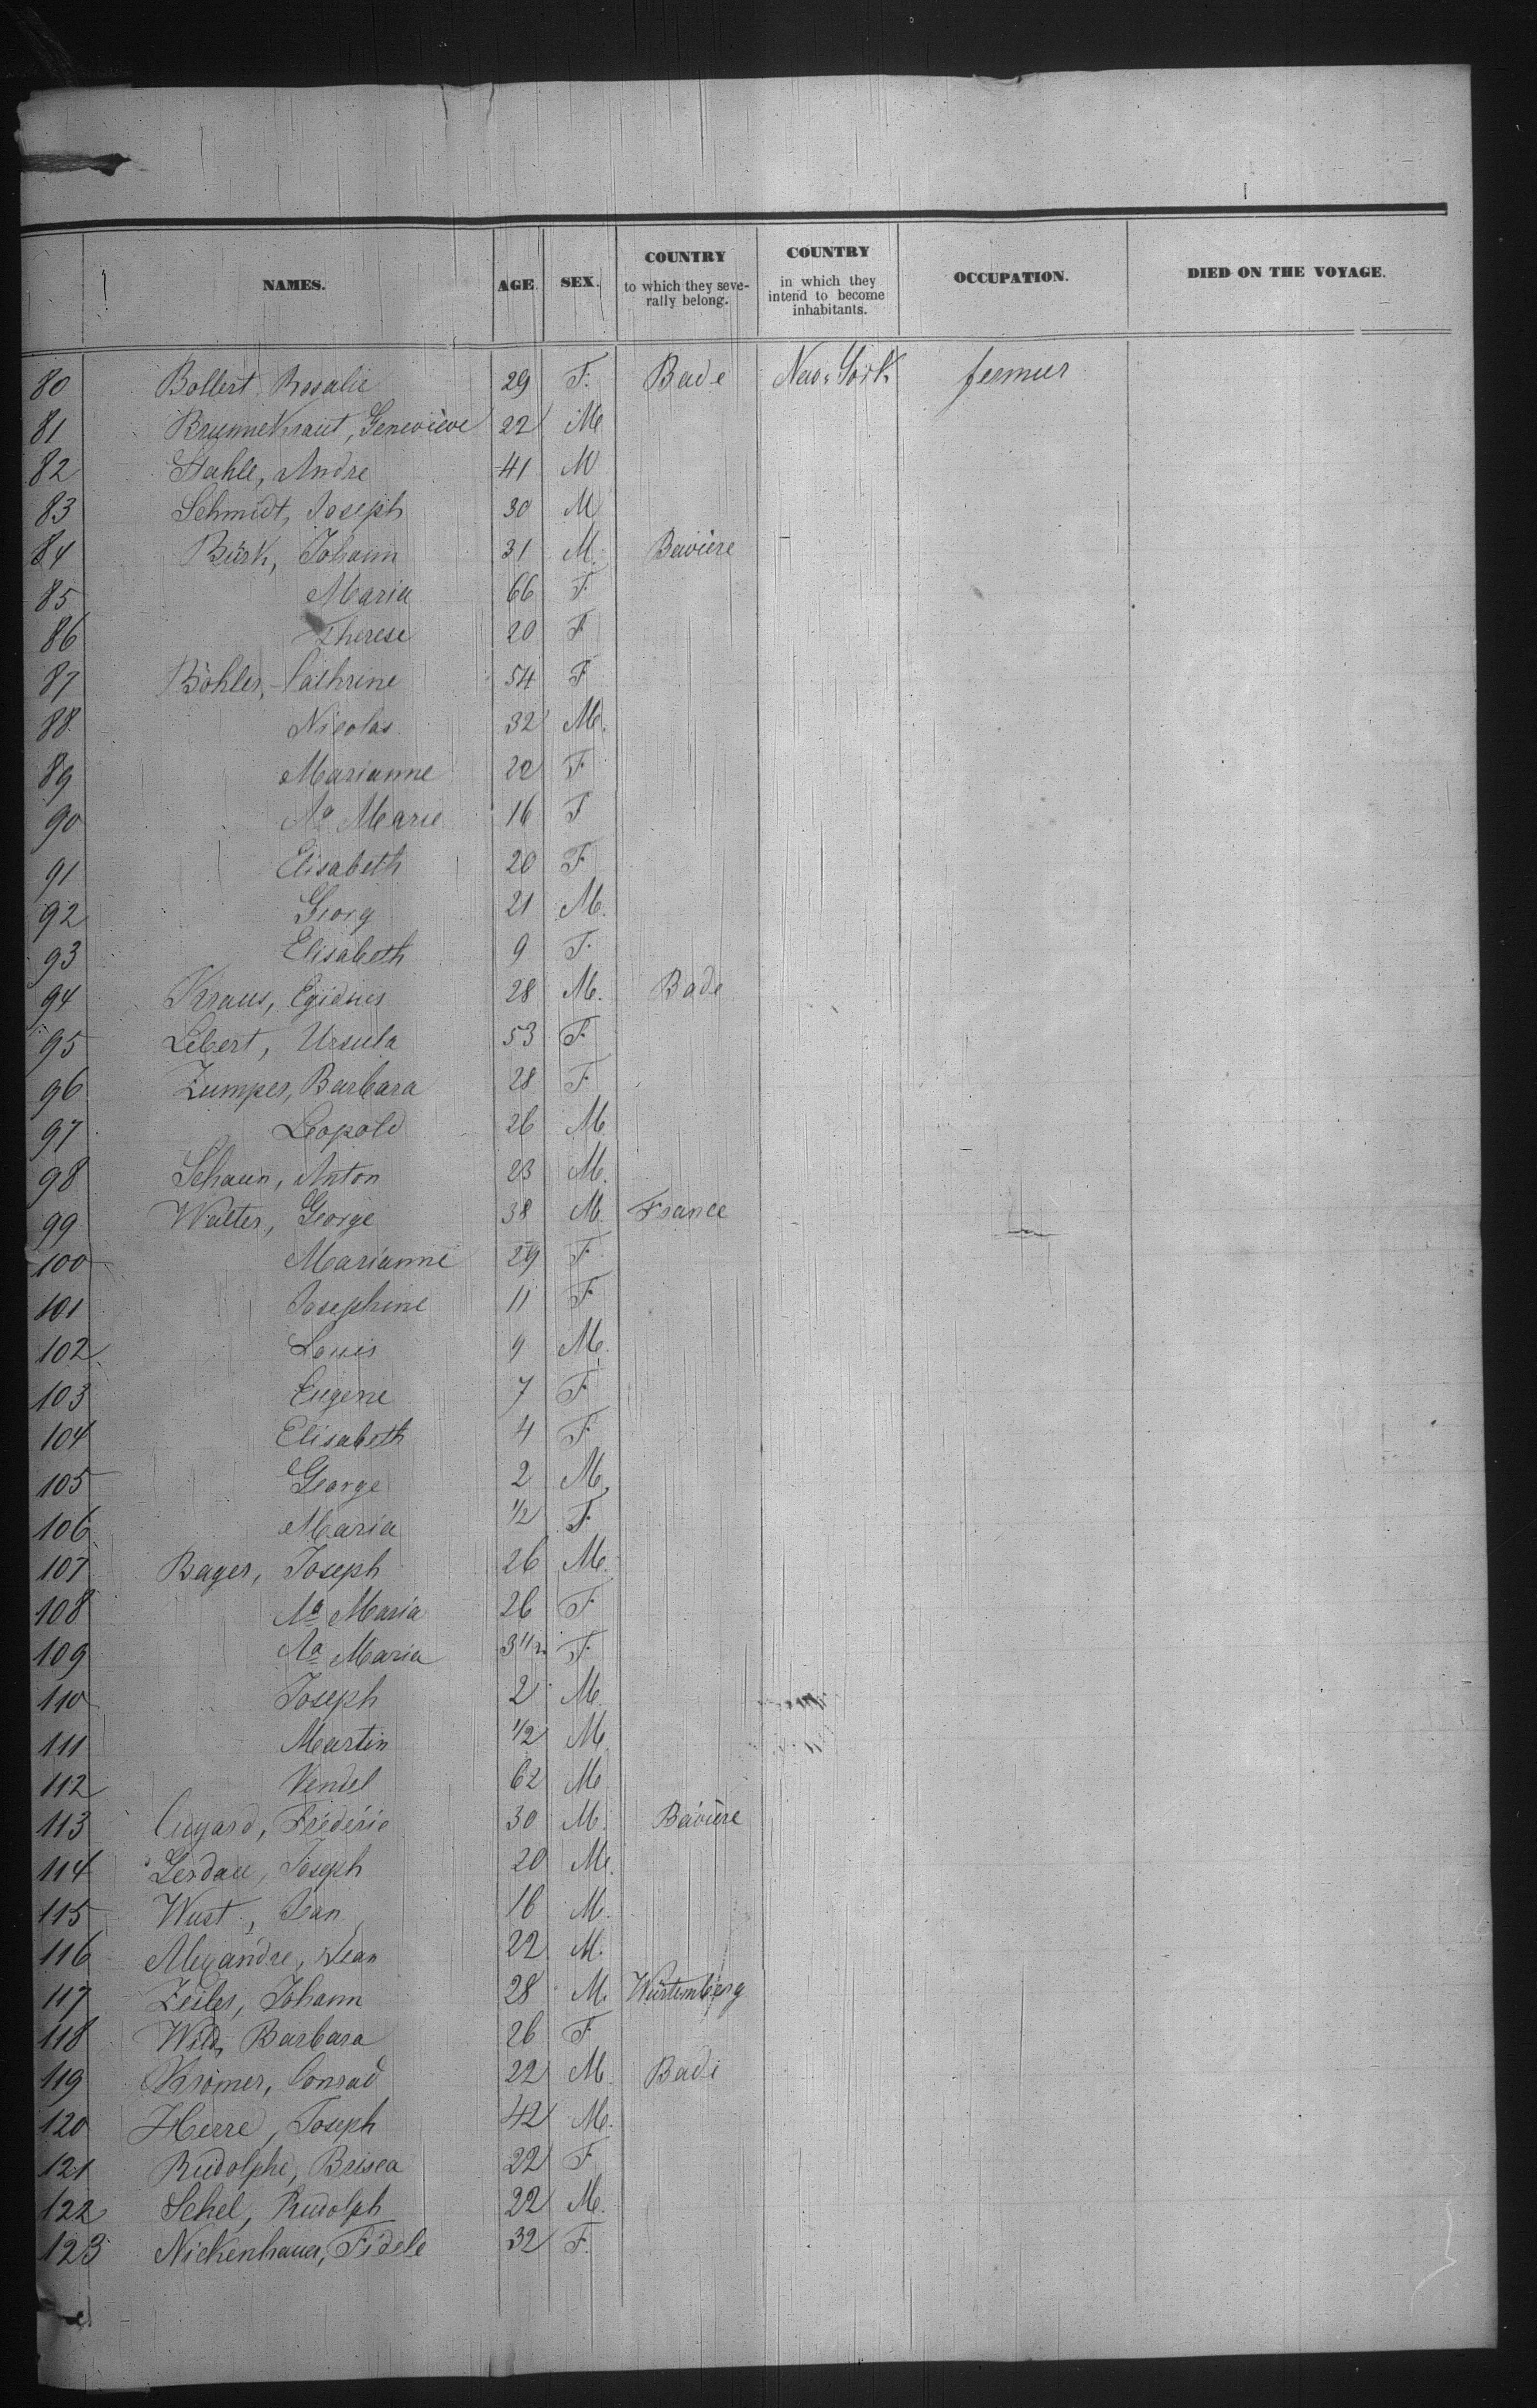 NAMES. AGE. SEX. COUNTRY to which they seve-rally belong. COUNTRY in which they intend to become inhabitants. OCCUPATION. DIED ON THE VOYAGE.
80 Bollert, Rosalie 29 F. Bade New York fermier
81 BrunneKraut, Geneviève 22 M
82 Stahle, Andre 41 M
83 Schmidt, Joseph 30 M
84 Bürk, Johann 31 M. Bavière
85 Maria 66 F.
86 Therese 20 F
87 Böhler, Cathrine 54 F
88 Nicolas 32 M.
89 Marianne 20 F
90 Aª Marie 16 F
91 Elisabeth 20 F
92 Georg 21 M.
93 Elisabeth 9 F.
94 Kraus, Egidius 28 M. Bade
95 Lebert, Ursula 53 F
96 Zumper, Barbara 28 F
97 Leopold 26 M
98 Schaun, Anton 23 M.
99 Walter, George 38 M. France
100 Marianne 29 F
101 Josephine 11 F
102 Louis 9 M.
103 Eugene 7 F
104 Elisabeth 4 F
105 George 2 M
106 Maria 1/2 F
107 Bager, Joseph 26 M.
108 Aª Maria 26 F
109 Aª Maria 3 1/2 F
110 Joseph 2 M
111 Martin 1/2 M
112 Vendel 62 M
113 Cuyard, Fréderic 30 M. Bavière
114 Gerdau, Joseph 20 M.
115 Wust, Jean 16 M.
116 Alexandre, Jean 22 M.
117 Zeiler, Johann 28 M. Würtemberg
118 Wild, Barbara 26 F
119 Kromer, Conrad 22 M. Bade
120 Herre, Joseph 42 M.
121 Rudolphe, Brisca 22 F
122 Schel, Rudolph 22 M.
123 Nickenhauer, Fidele 32 F.